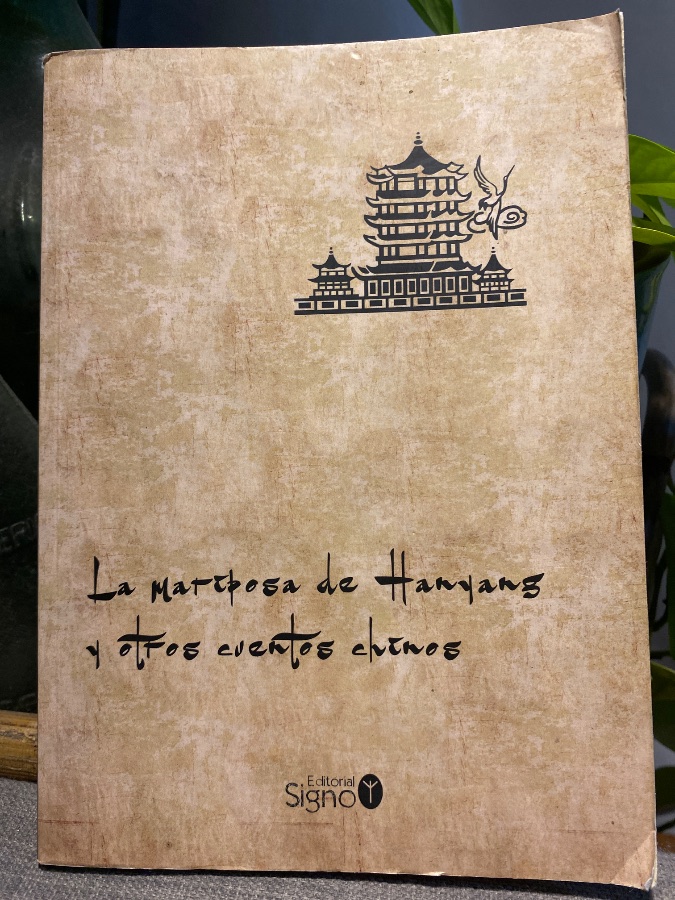 La mariposa de Hanyang
y otros cuentos chinos
Editorial
Signo